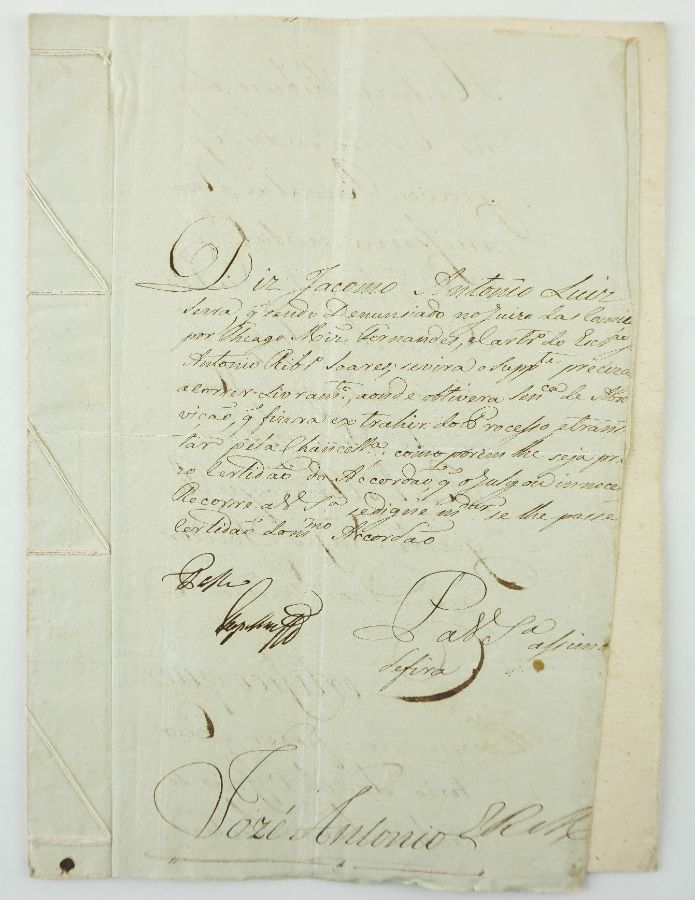 Diz Jacomo Antonio Luiz
Serra, q̃ sendo Denunsiado no Juizo das
por Theago Miz̃ Hernandes, e Cartr.º do Escr.ᵃᵐ
Antonio Rib.º Soares, se vira o Supp.ᵗᵉ preciza
a correr Livram.ᵗº, aonde obtivera Sen.ᶜᵃ de Abso
viçaõ, q̃ fizera extrahir do Processo, e tranzi
tar pela Chancell.ᵃ, como porem lhe seja pre
zo Certidaõ do Accordaõ q̃ o Julgou innocen
Recorre a V S.ᵃ se digne m.ᵈᵃʳ se lhe passe
Certidaõ do m.ᵐᵒ Accordaõ
Passe
P a V S.ª
assim o
defira
Jozé Antonio